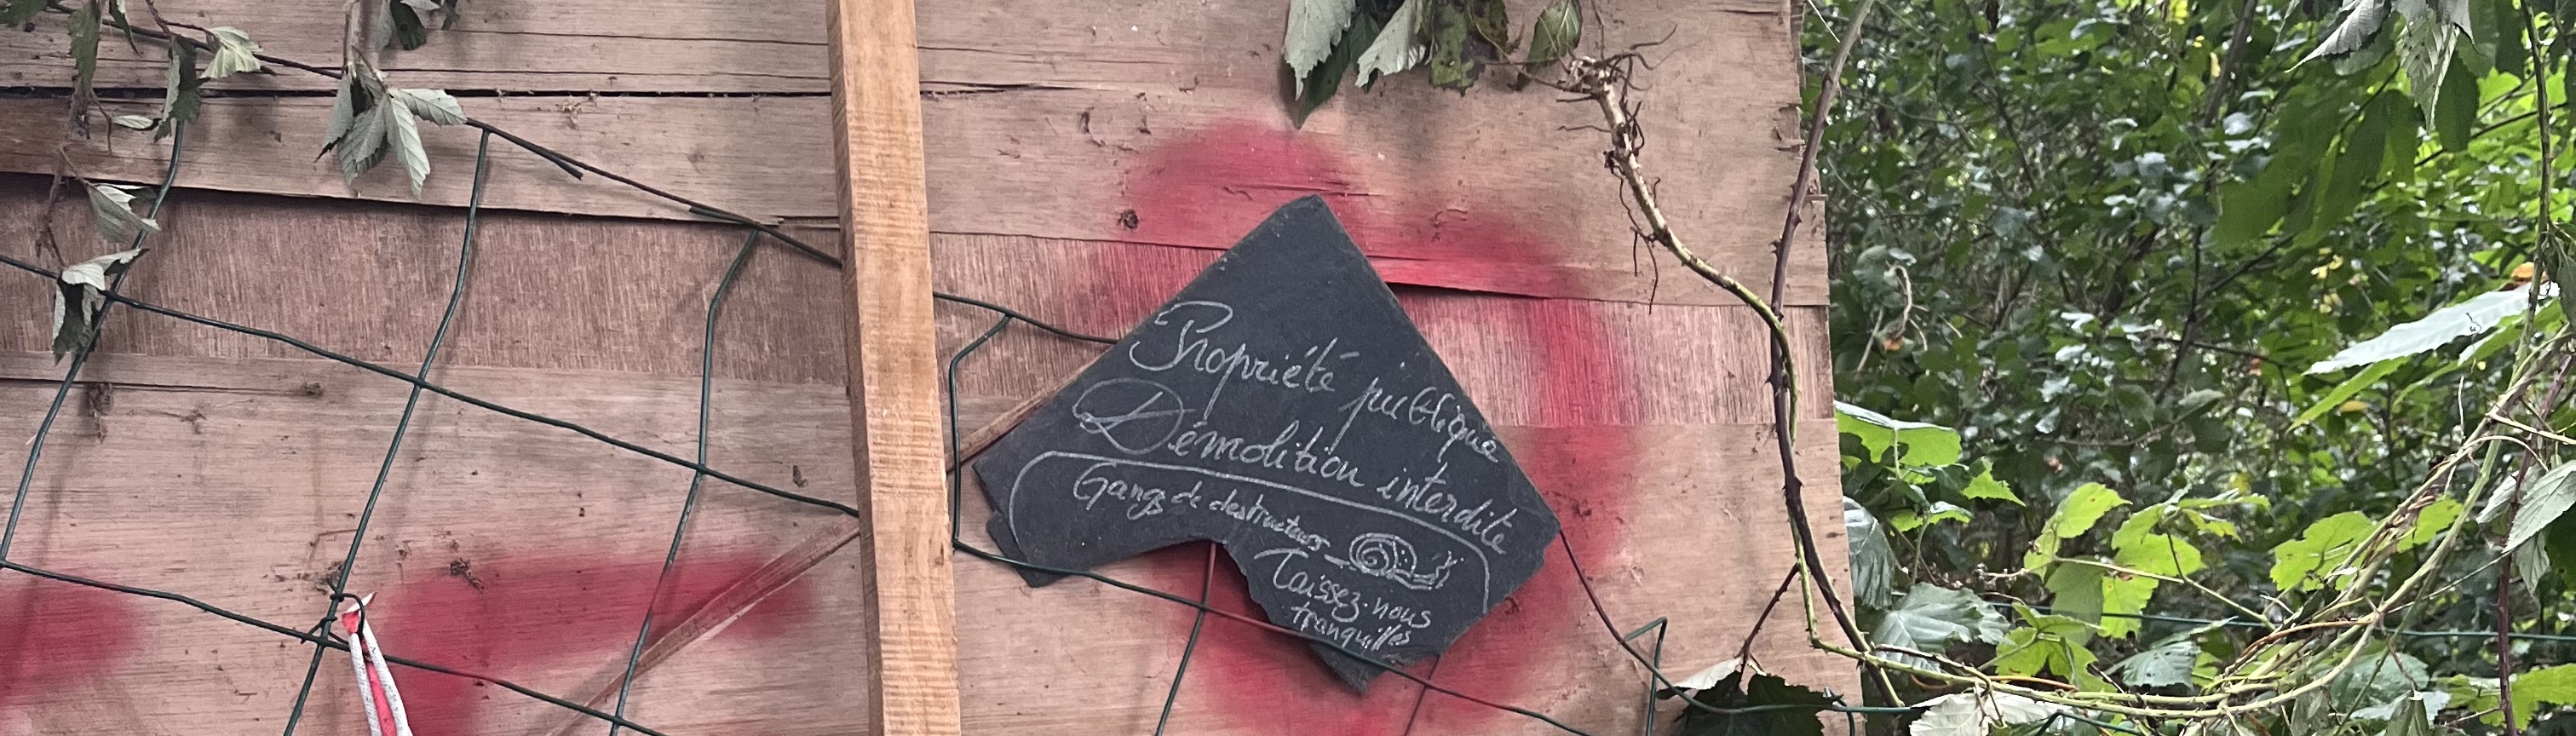 Propriété publique
Démolition interdite
Gangs de destructeurs
Laissez-nous
tranquilles